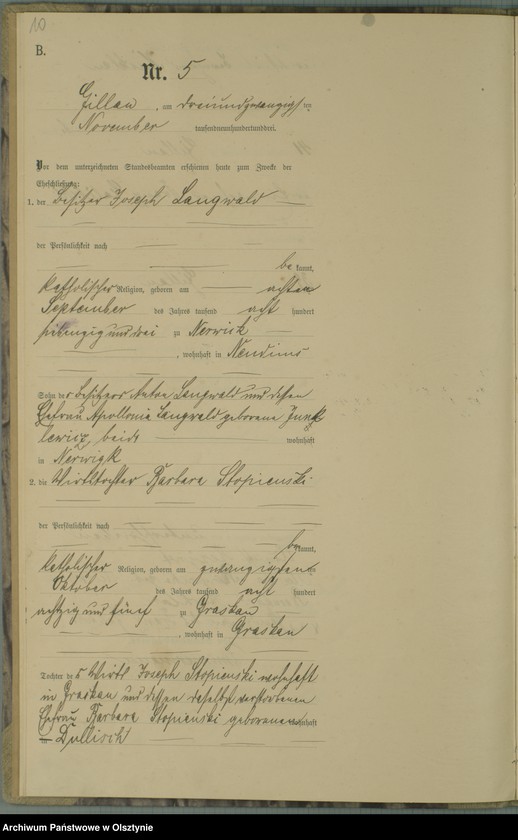 10
B.
Nr. 5
Gillau, am dreiundzwanzigsten
November tausendneunhundertunddrei.
Vor dem unterzeichneten Standesbeamten erschienen heute zum Zwecke der
Eheschließung:
1. der Besitzer Joseph Langwald
der Persönlichkeit nach
be kannt,
katholischer Religion, geboren am achten
September des Jahres tausend acht hundert
siebenzig und drei zu Nerwick
, wohnhaft in
Sohn des Besitzers Anton Langwald und dessen
Ehefrau Apollonia Langwald geborene
beide wohnhaft
in Nerwigk
2. die Wirthtochter Barbara Stopienski
der Persönlichkeit nach
be kannt,
katholischer Religion, geboren am zwanzigsten
Oktober des Jahres tausend acht hundert
achtzig und fünf zu Graskau
, wohnhaft in Graskau
Tochter des Wirth Joseph Stopienski wohnhaft
in Graskau und dessen daselbst verstorbenen
Ehefrau Barbara Stopienski geborene wohnhaft
in Dullisch
Archiwum Państwowe w Olsztynie